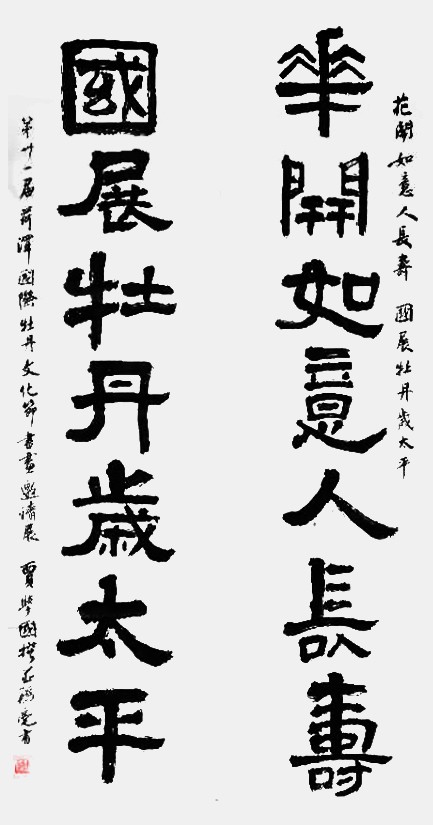 花開如意人長壽 國展牡丹歲太平
華開如意人長壽
國展牡丹歲太平
第廿一届菏澤國際牡丹文化節書畫邀請展 賈學國撰